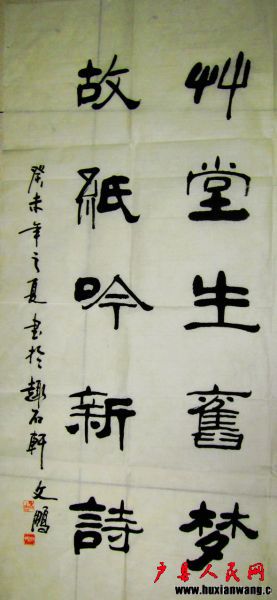 艸堂生舊梦
故紙吟新詩
癸未年之夏書於趣石軒 文鵬
户县人民网
www.huxianwang.c